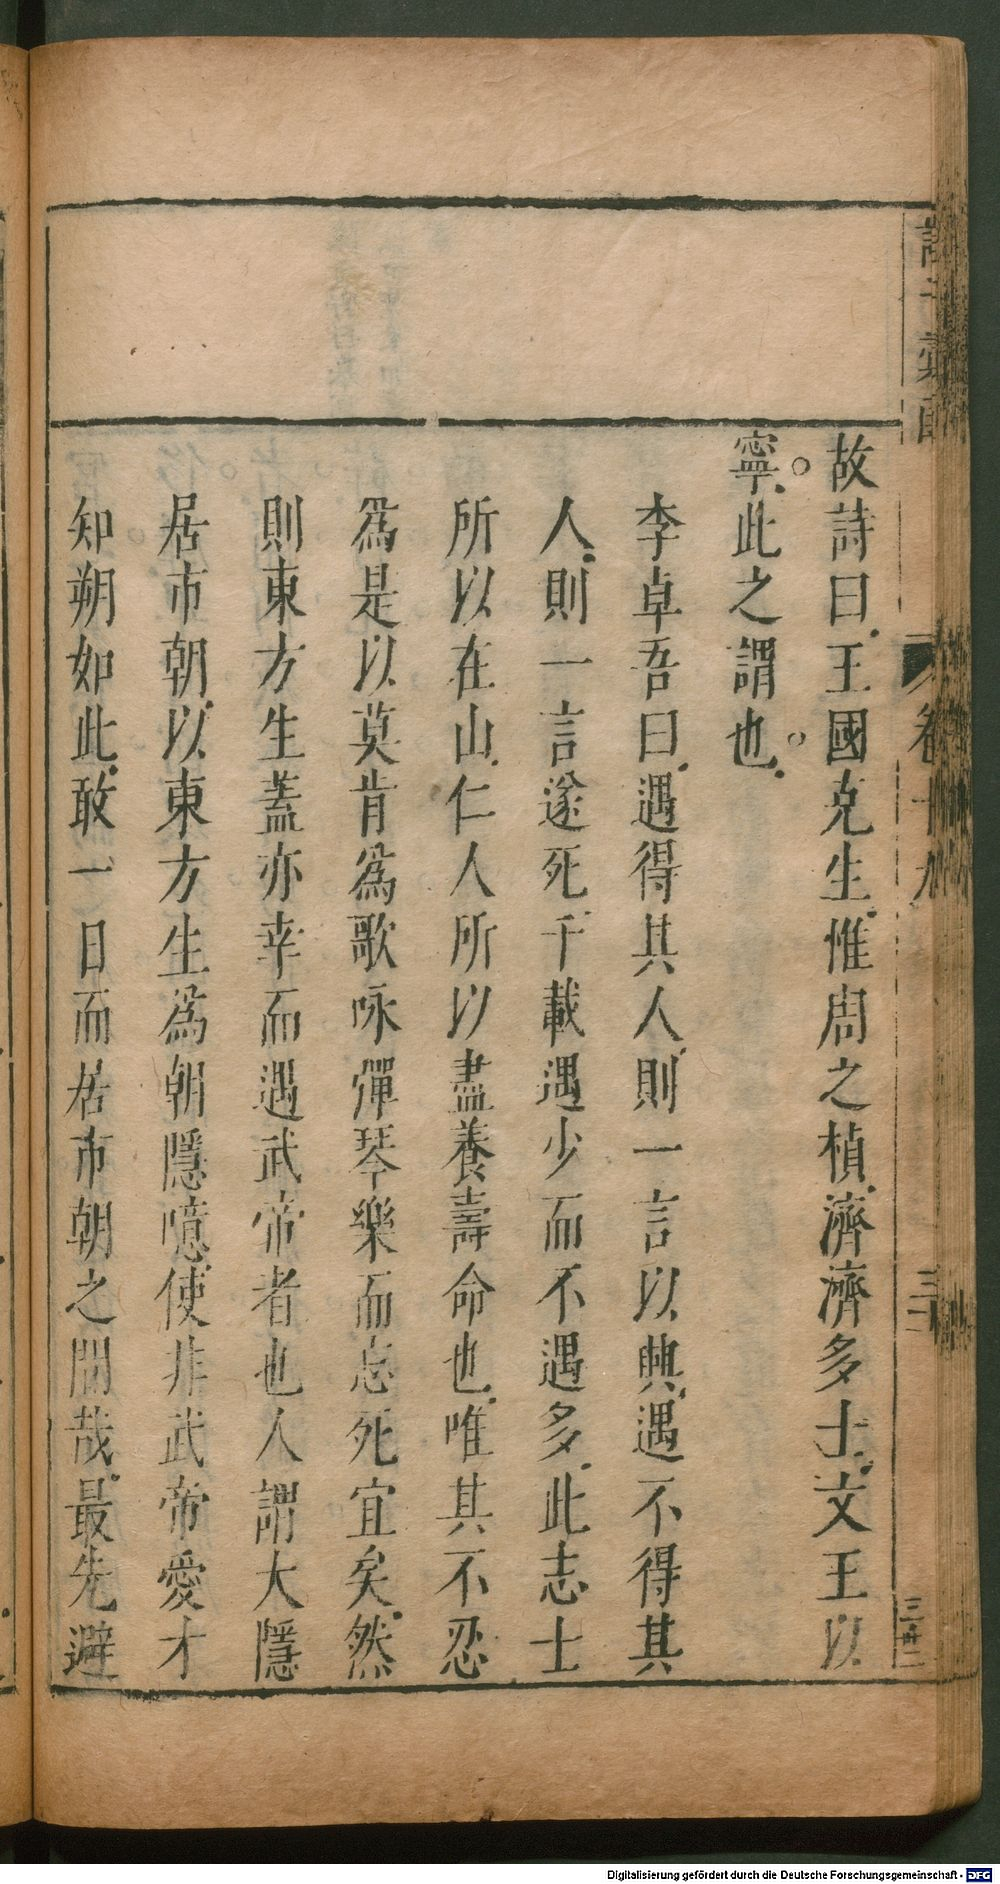 故詩曰王國克生惟周之楨濟濟多士文王以
寧此之謂也
李卓吾曰遇得其人則一言以興遇不得其
人則一言遂死千載遇少而不遇多此志士
所以在山仁人所以盡養壽命也唯其不忍
爲是以莫肯爲歌咏彈琴樂而忘死宜矣然
則東方生蓋亦幸而遇武帝者也人謂大隱
居市朝以東方生爲朝隱噫使非武帝愛才
知朔如此敢一日而居市朝之間哉最先避
卷十九
Digitalisierung gefördert durch die Deutsche Forschungsgemeinschaft - DFG